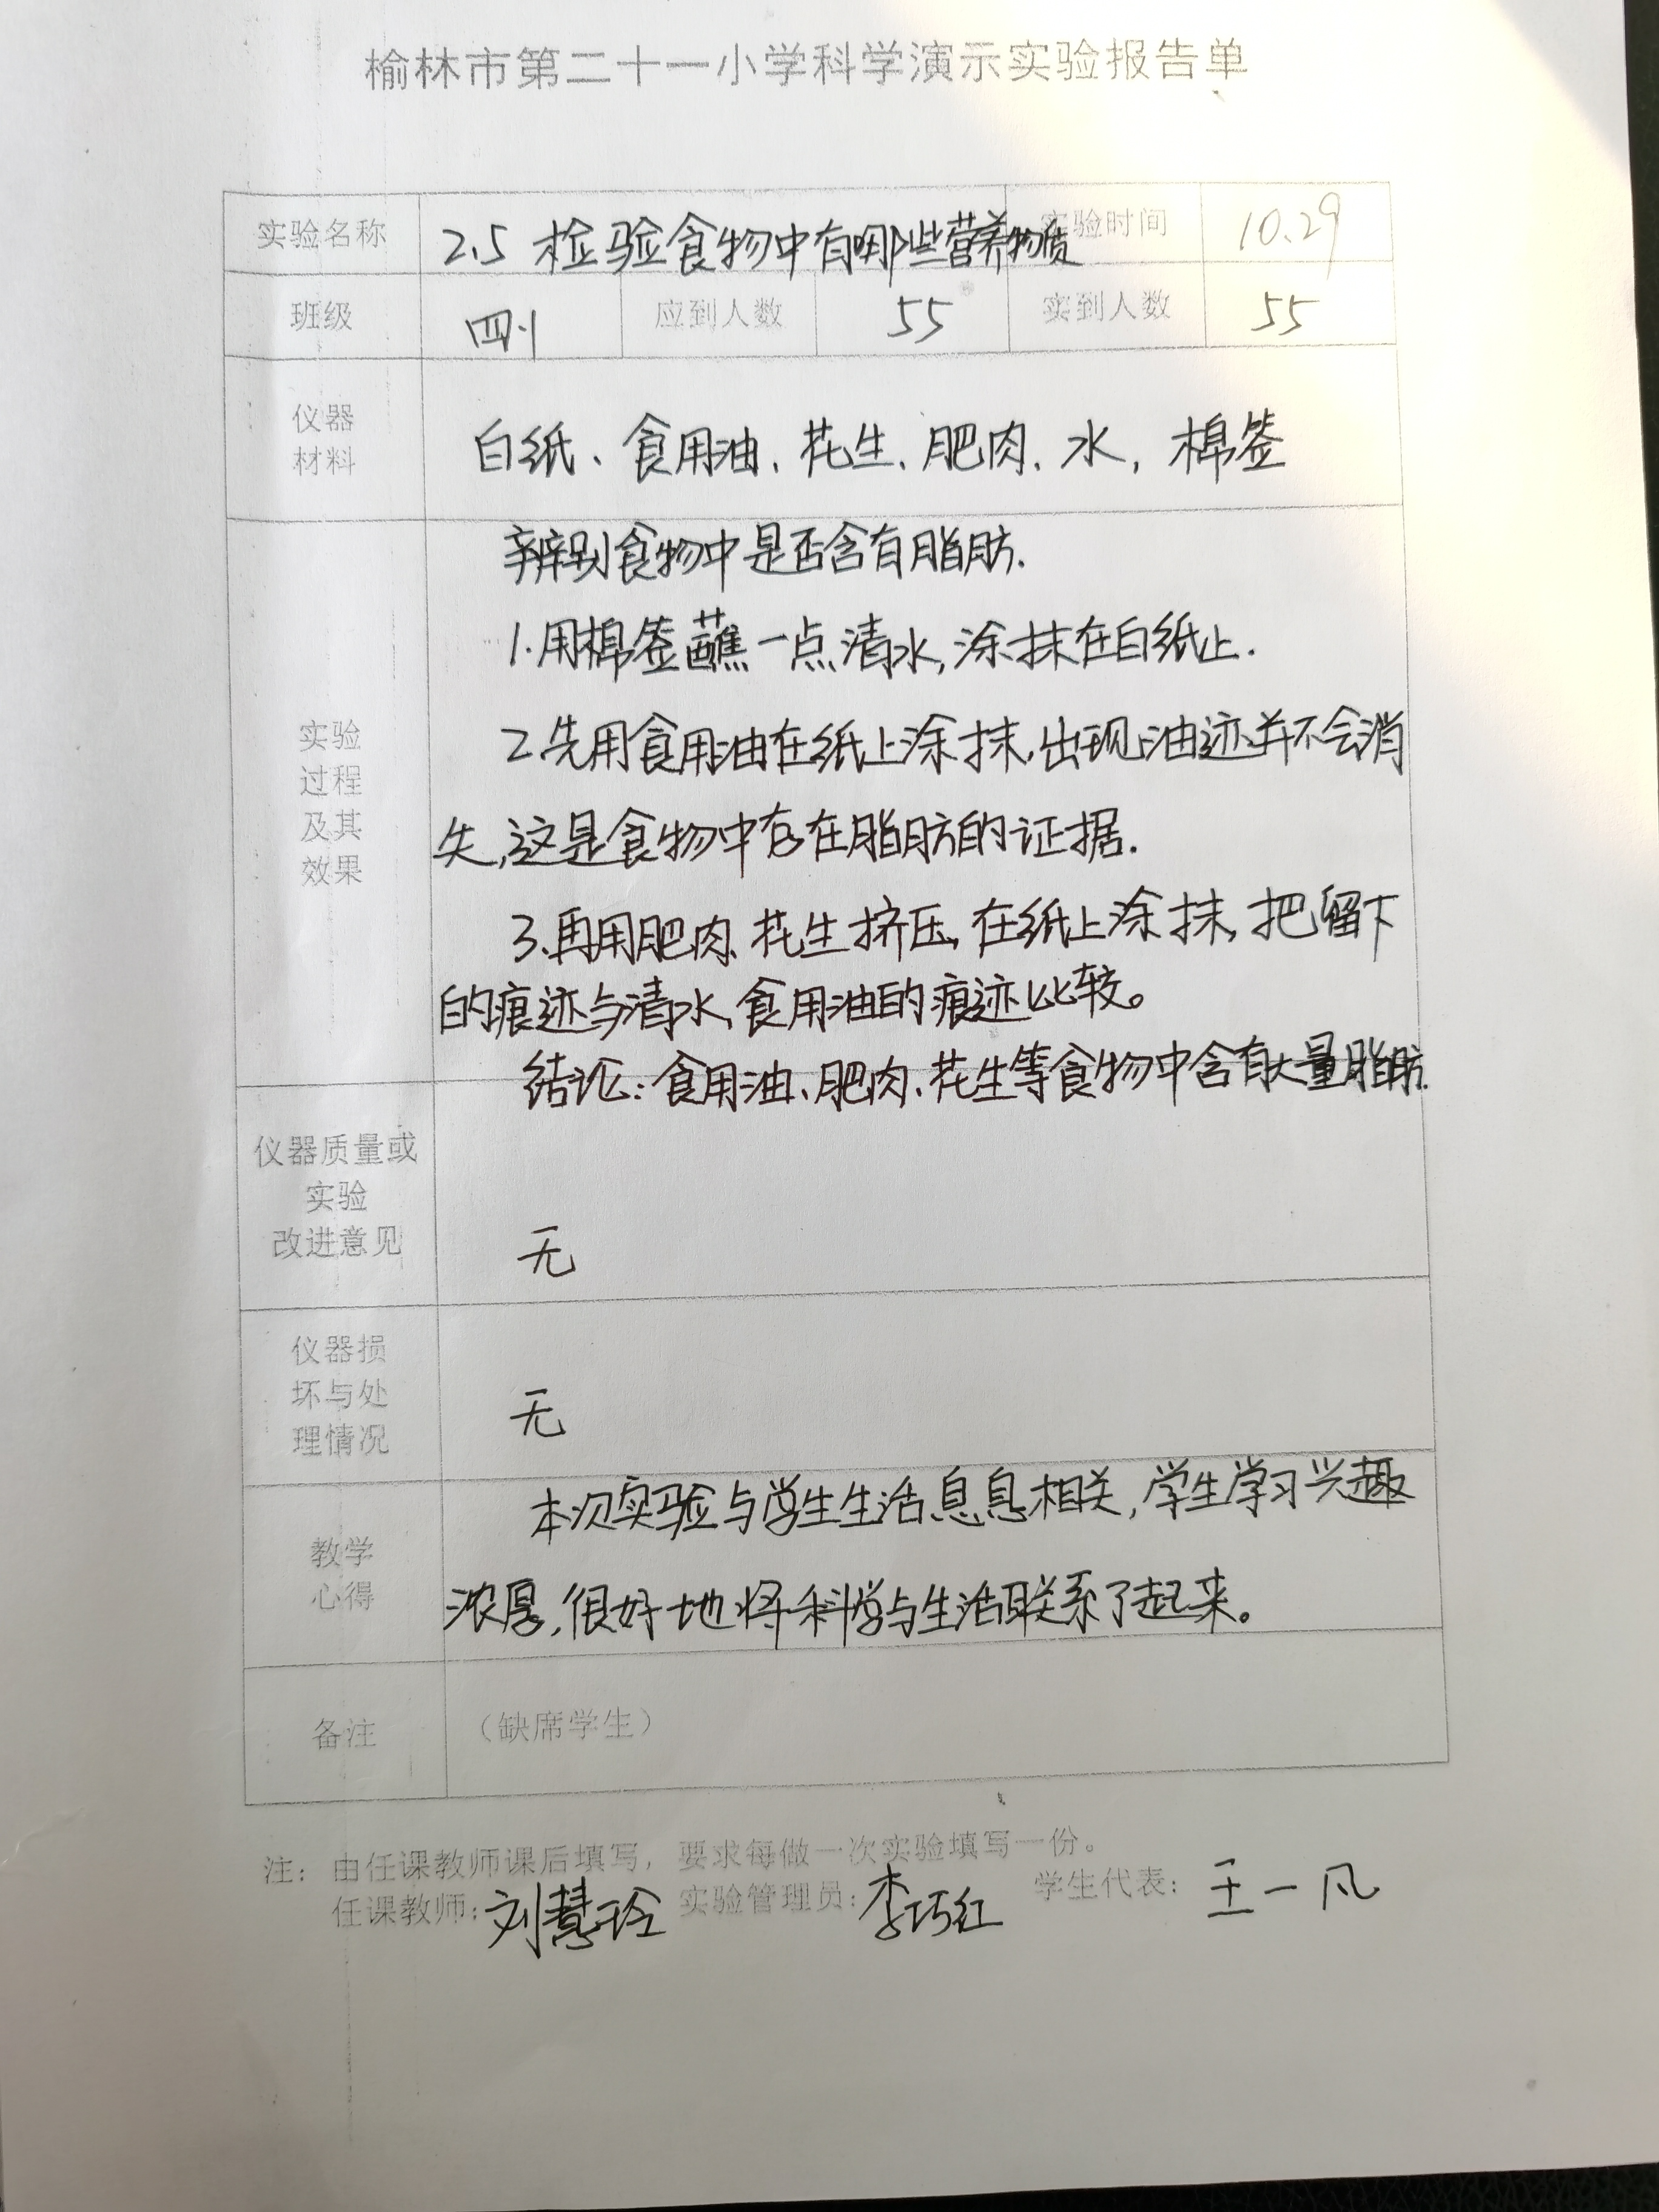 榆林市第二十一小学科学演示实验报告单
实验名称 2.5 检验食物中有哪些营养物质 实验时间 10.29
班级 四.1 应到人数 55 实到人数 55
仪器
材料
白纸、食用油、花生、肥肉、水，棉签
实验
过程
及其
效果
辨别食物中是否含有脂肪.
1.用棉签蘸一点清水,涂抹在白纸上.
2.先用食用油在纸上涂抹,出现油迹并不会消
失,这是食物中存在脂肪的证据.
3.再用肥肉、花生挤压,在纸上涂抹,把留下
的痕迹与清水、食用油的痕迹比较。
结论:食用油、肥肉、花生等食物中含有大量脂肪.
仪器质量或
实验
改进意见
无
仪器损
坏与处
理情况
无
教学
心得
本次实验与学生生活息息相关,学生学习兴趣
浓厚,很好地将科学与生活联系了起来。
备注 （缺席学生）
注：由任课教师课后填写，要求每做一次实验填写一份。
任课教师:刘慧玲 实验管理员:李巧红 学生代表:王一凡